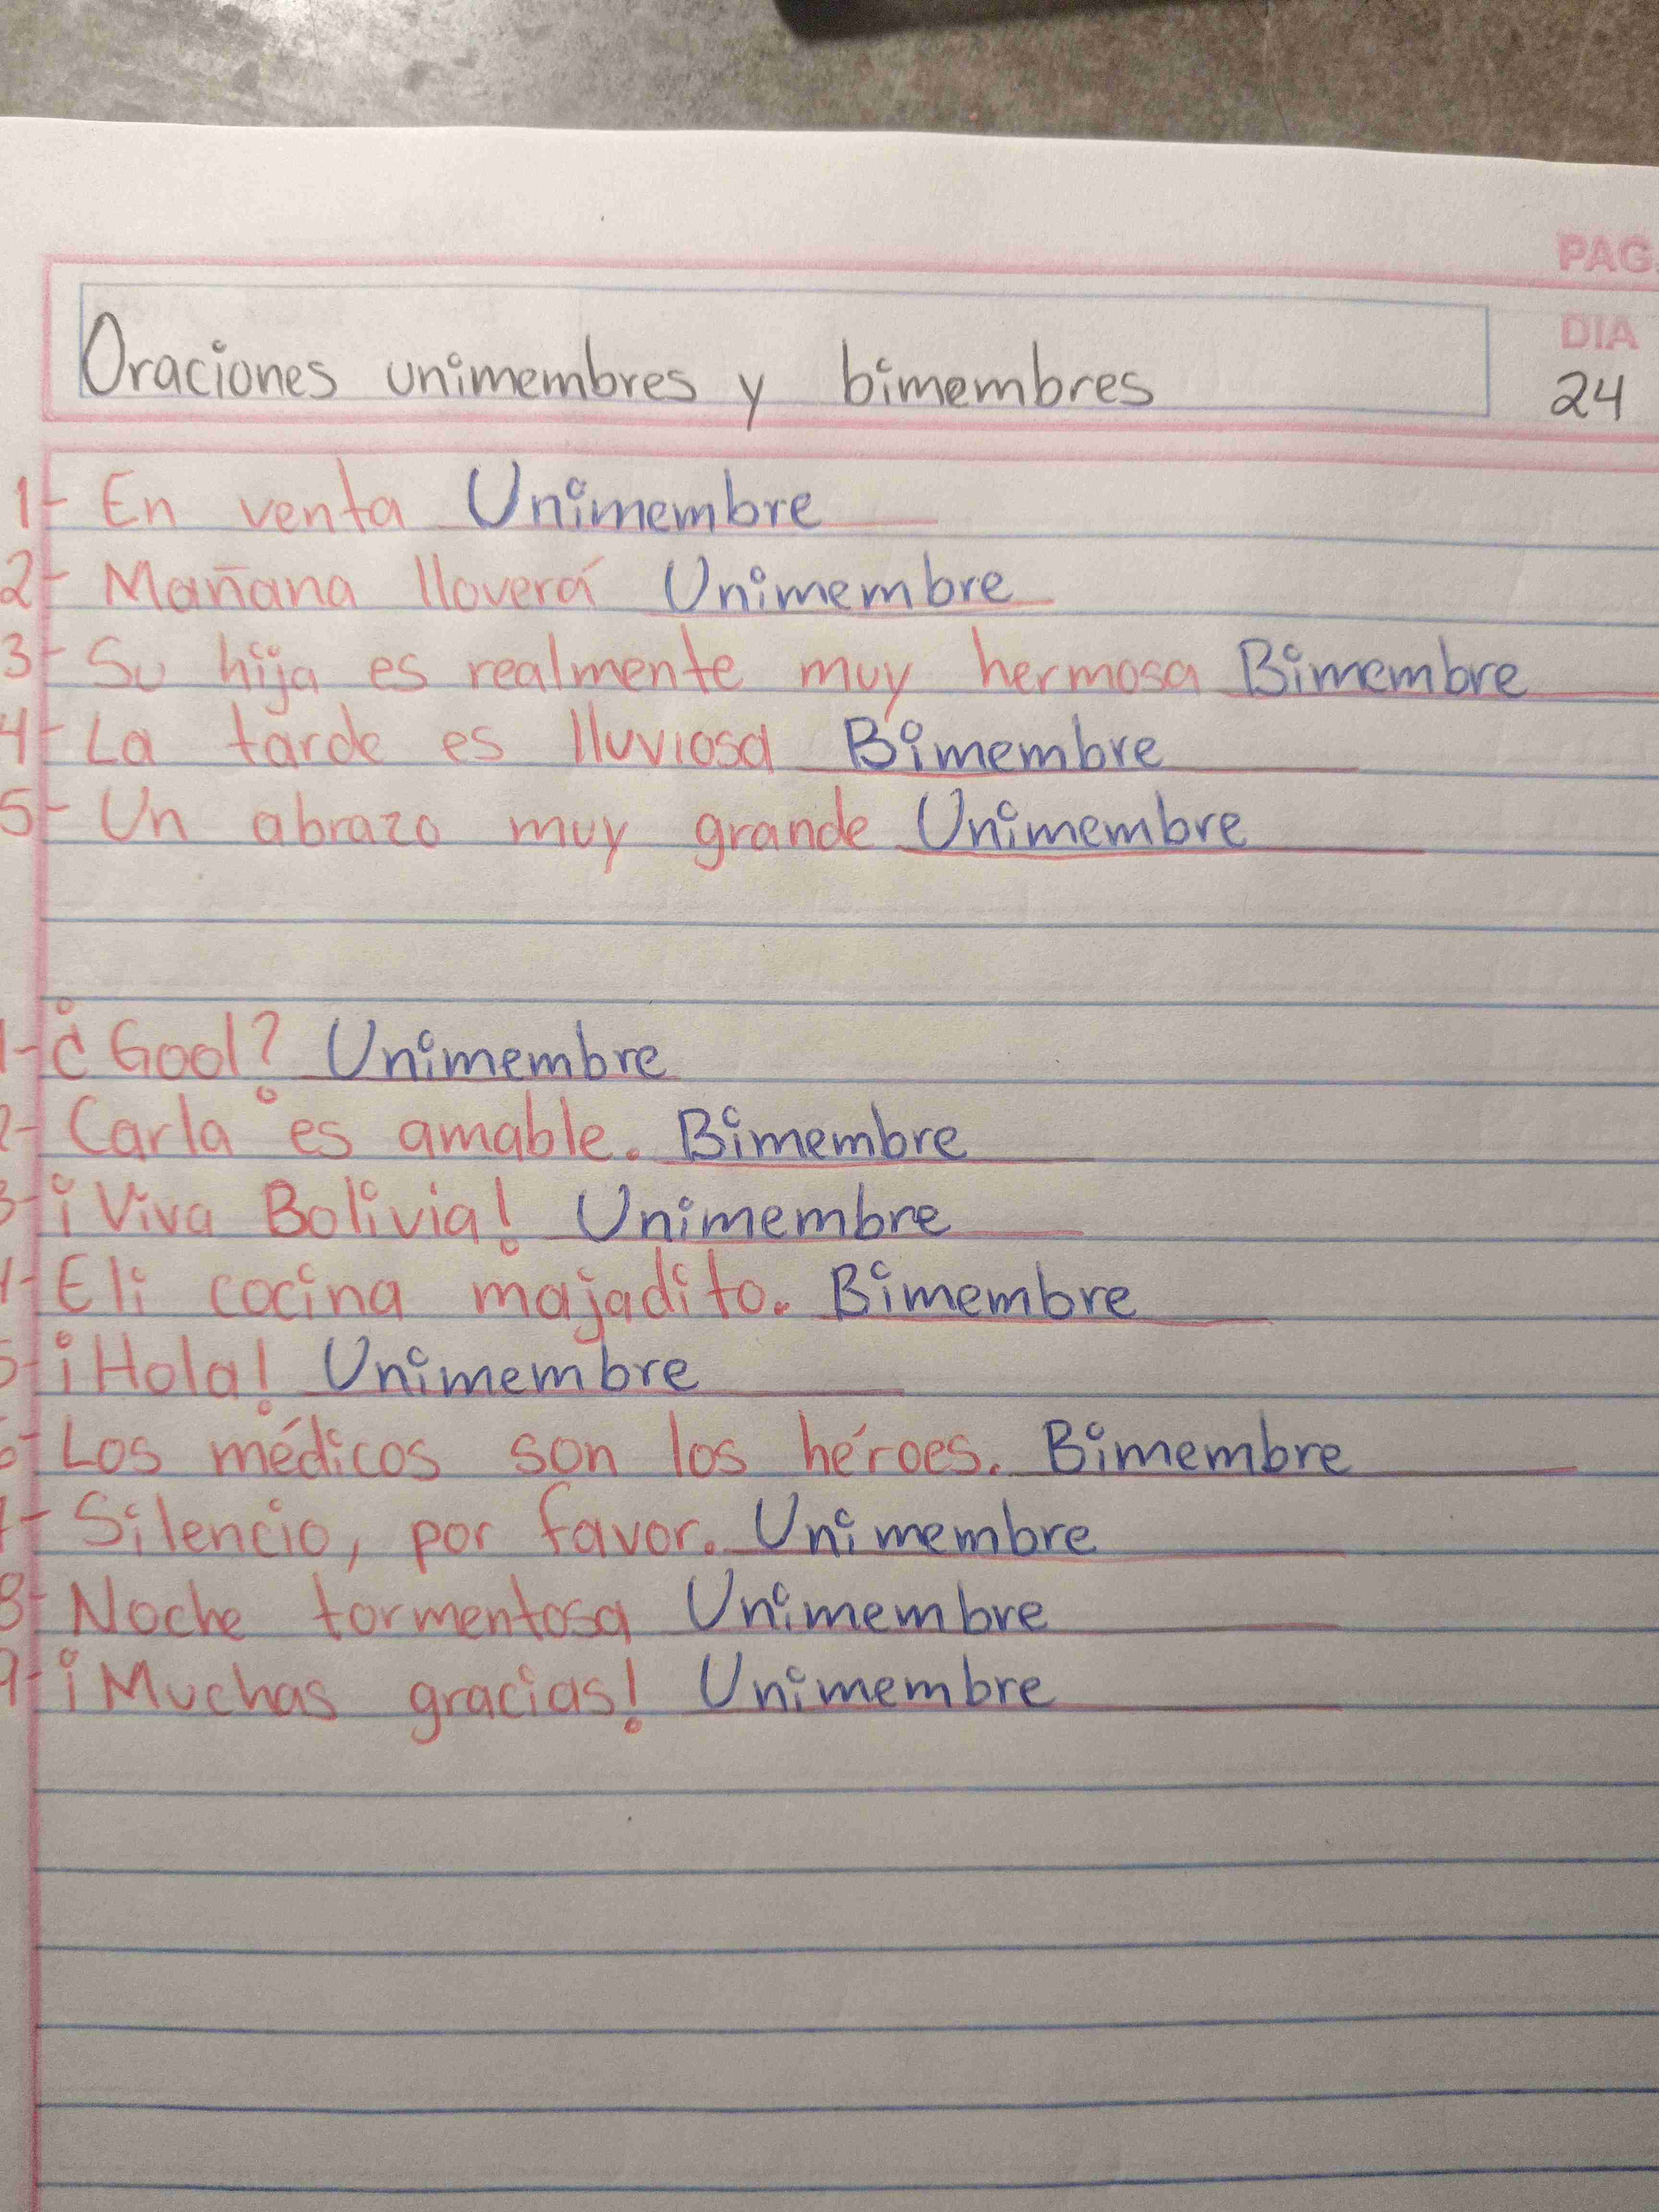 PAG.
DIA
Oraciones unimembres y bimembres
24
1- En venta Unimembre
2- Mañana lloverá Unimembre
3- Su hija es realmente muy hermosa Bimembre
4- La tarde es lluviosa Bimembre
5- Un abrazo muy grande Unimembre
1- ¿Gool? Unimembre
2- Carla es amable. Bimembre
3- ¡Viva Bolivia! Unimembre
4- Eli cocina majadito. Bimembre
5- ¡Hola! Unimembre
6- Los médicos son los héroes. Bimembre
7- Silencio, por favor. Unimembre
8- Noche tormentosa Unimembre
9- ¡Muchas gracias! Unimembre